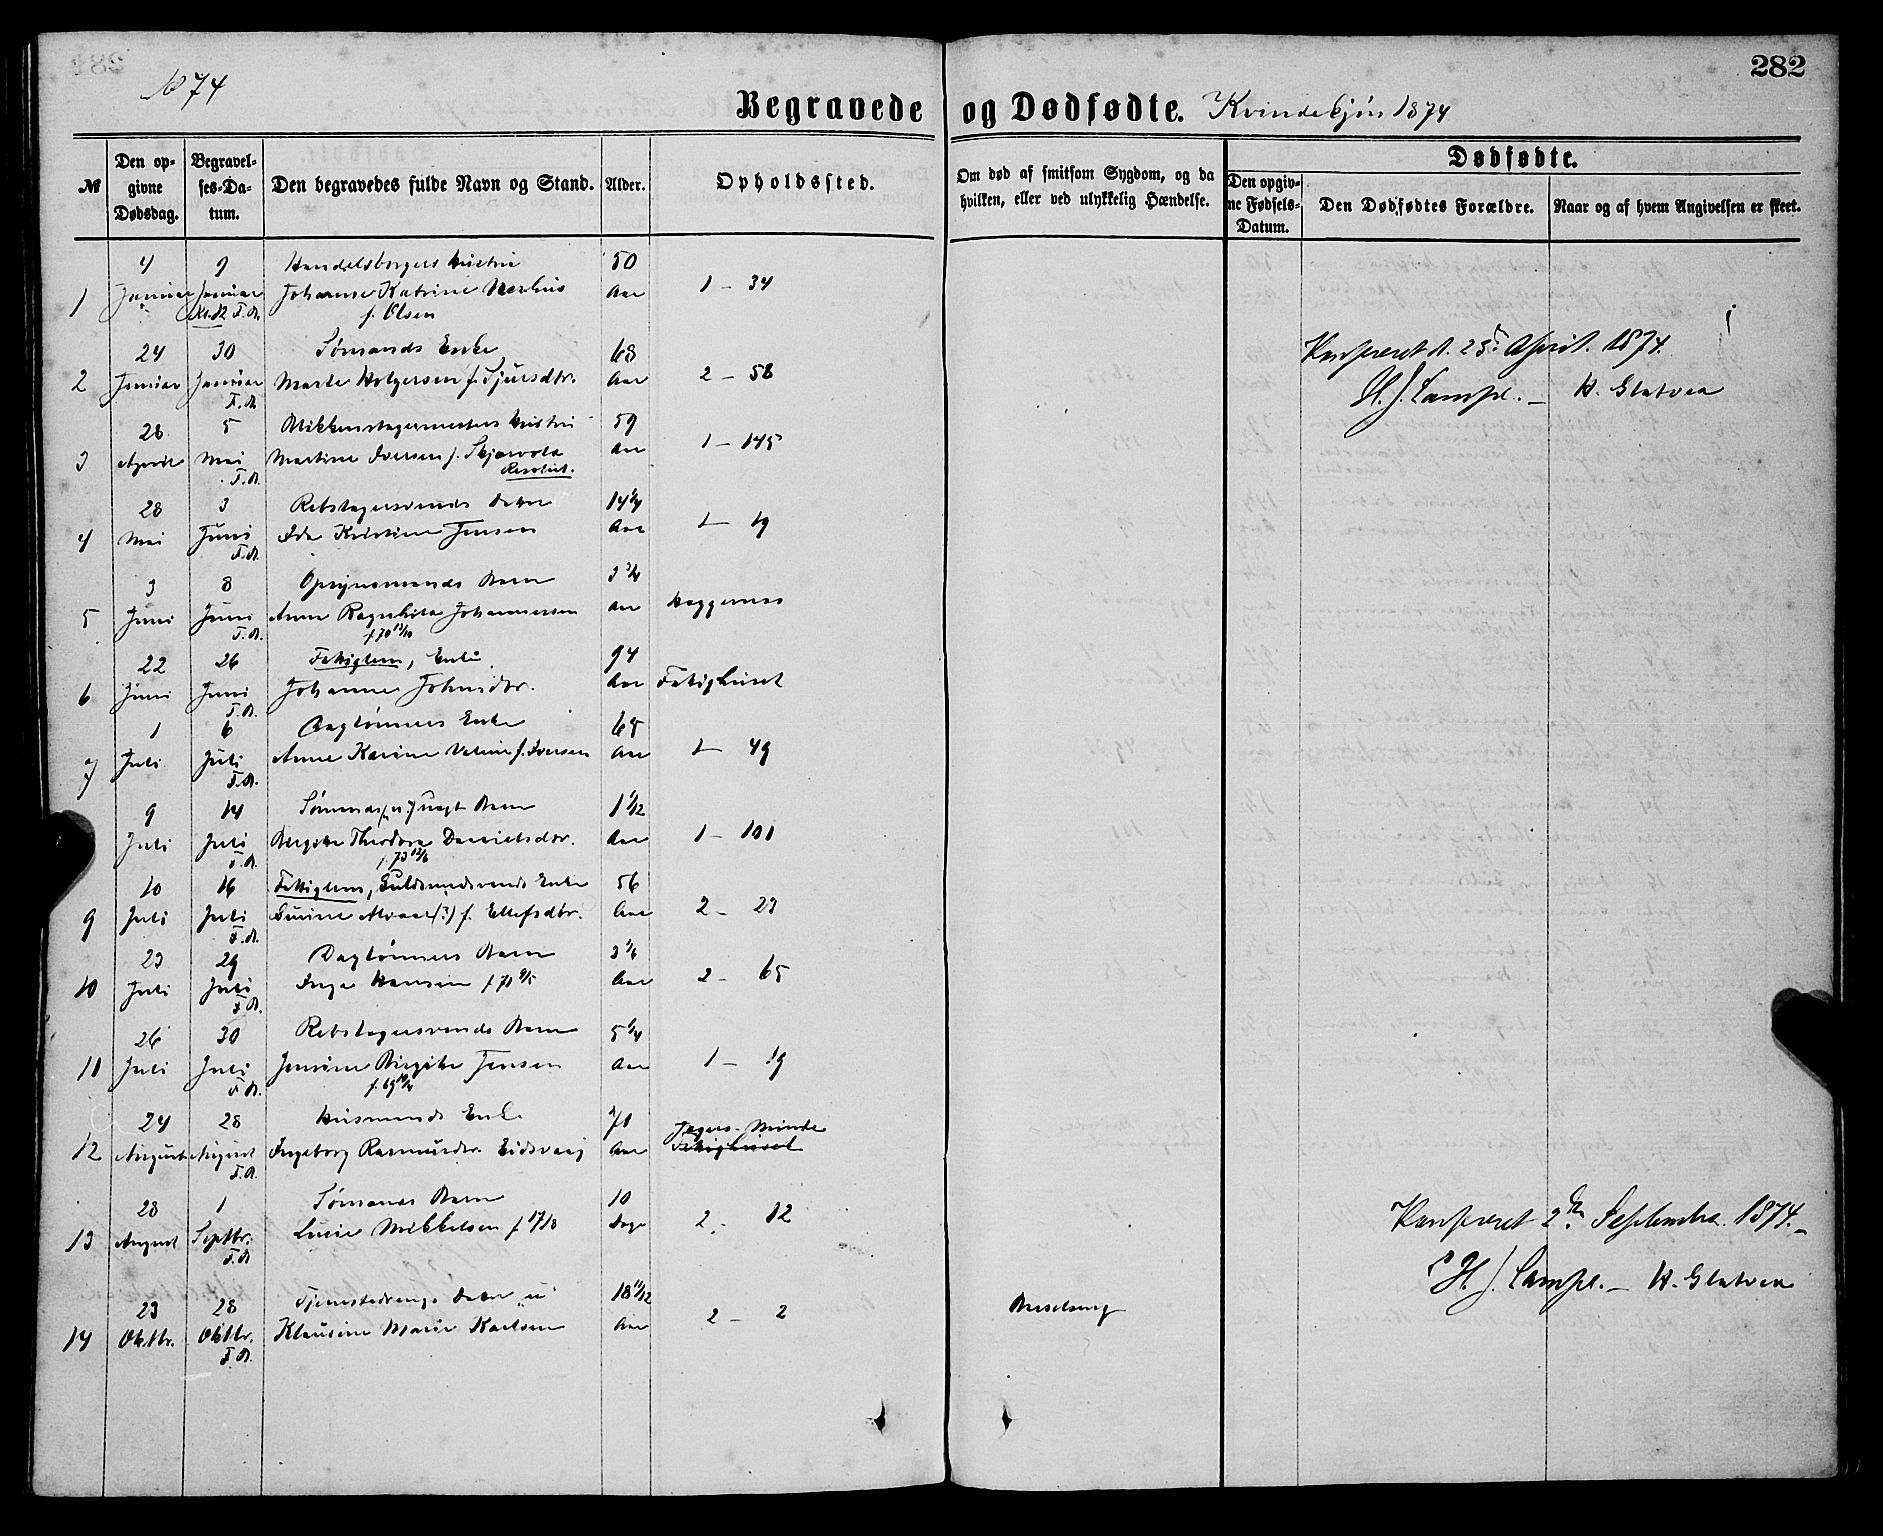 282
1874
Begravede og Dødfødte. Kvindekjøn 1874
№
Den opgivne Dødsdag.
Begravelses-Datum.
Den begravedes fulde Navn og Stand.
Alder.
Opholdssted.
Om død af smitsom Sygdom, og da hvilken, eller ved ulykkelig Hændelse.
Dødfødte.
Den opgivne Fødsels-Datum.
Den Dødfødtes Forældre.
Naar og af hvem Angivelsen er skeet.
4 9 Handelsborgers Hustru 50
1 Januar Januar Johanne Katrine Aar 1 – 34
F.A. f. Olsen
24 30 Sømands Enke 68
2 Januar Januar Marte Holgersen f. Sjursdtr. Aar 2 – 58
F.A.
Konfereret d. 25. April. 1874.
H. J. Lampe. – H. Glatved
28 5 Blikkenslagermesters Hustru 59
3 April Mai Martine Iversen f. Skjævold Aar 1 – 145
F.A.
28 3 Rebslagersvends Datter 14 1/4
4 Mai Juni Ida Kristine Jensen Aar 1 – 19
F.A.
3 8 Opsynsmands Barn 3 3/4
5 Juni Juni Anne Ragnhild Johannessen Aar
F.A. f. 70
22 26 Fattiglem, Enke 94
6 Juni Juni Johanne Johnsdtr. Aar Fattighuset
F.A.
1 6 Daglønners Enke 68
7 Juli Juli Anne Karine f. Iversen Aar 1 – 49
F.A.
9 14 Barn 1 1/12
Juli Juli Birgitte Theodora Danielsdtr. Aar 1 – 101
F.A. f. 73
10 16 Fattiglem, Guldsmedsvends Enke 56
9 Juli Juli (?) f. Ellefsdtr. Aar 2 – 23
F.A.
23 29 Daglønners Barn
10 Juli Juli Inga Hansen Aar 2 – 65
F.A.
26 30 Rebslagersvends Barn 5 1/4
11 Juli Juli Jensine Birgitte Jensen Aar 1 – 19
F.A. f. 69
24 28 Husmands Enke
12 August August Ingeborg Rasmusdtr. Eidsvaag Aar Minde
F.A. Fattighuset
28 1 Sømands Barn 10
13 August Septbr. Lucie Mikkelsen f. 17/8 Dage 2 – 12
F.A.
Konfereret 2den September. 1874. –
H. J. Lampe. – H. Glatved
23 28 Tjenestedrengs Datter 18 11/12
14 Oktbr. Oktbr. Klausine Marie Karlsen Aar 2 – 2
F.A.